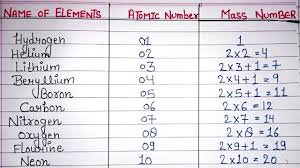 NAME OF ELEMENTS ATOMIC NUMBER MASS NUMBER
Hydrogen 01 1
Helium 02 2x2=4
Lithium 03 2x3+1=7
Beryllium 04 2x4+1=9
Boron 05 2x5+1=11
Carbon 06 2x6=12
Nitrogen 07 2x7=14
Oxygen 08 2x8=16
Flourine 09 2x9+1=19
Neon 10 2x10=20